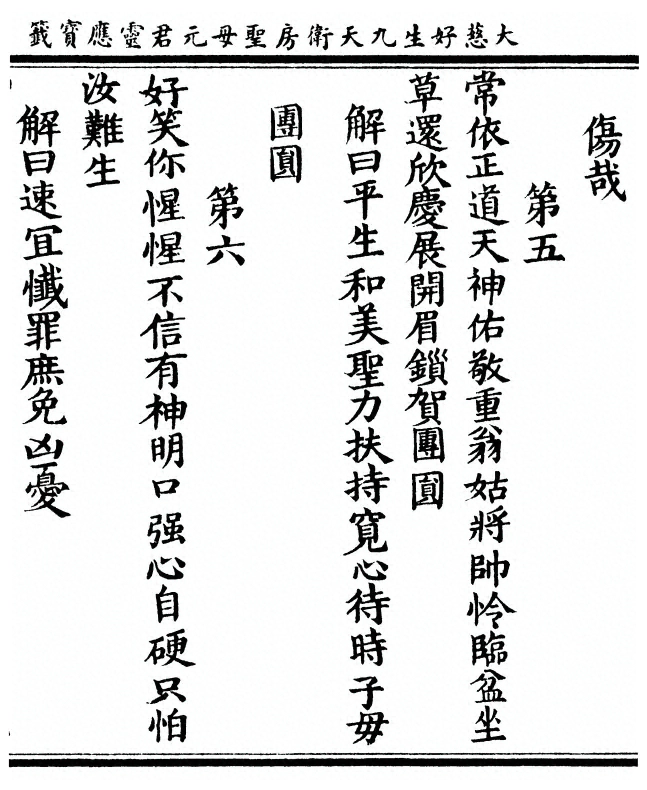 大慈好生九天衛房聖母元君靈應寶籤
傷哉
第五
常依正道天神佑敬重翁姑將帥怜臨盆坐
草還欣慶展開眉鎻賀團圓
解曰平生和美聖力扶持寬心待時子母
團圓
第六
好笑你惺惺不信有神明口强心自硬只怕
汝難生
解曰速宜懺罪庶免凶憂